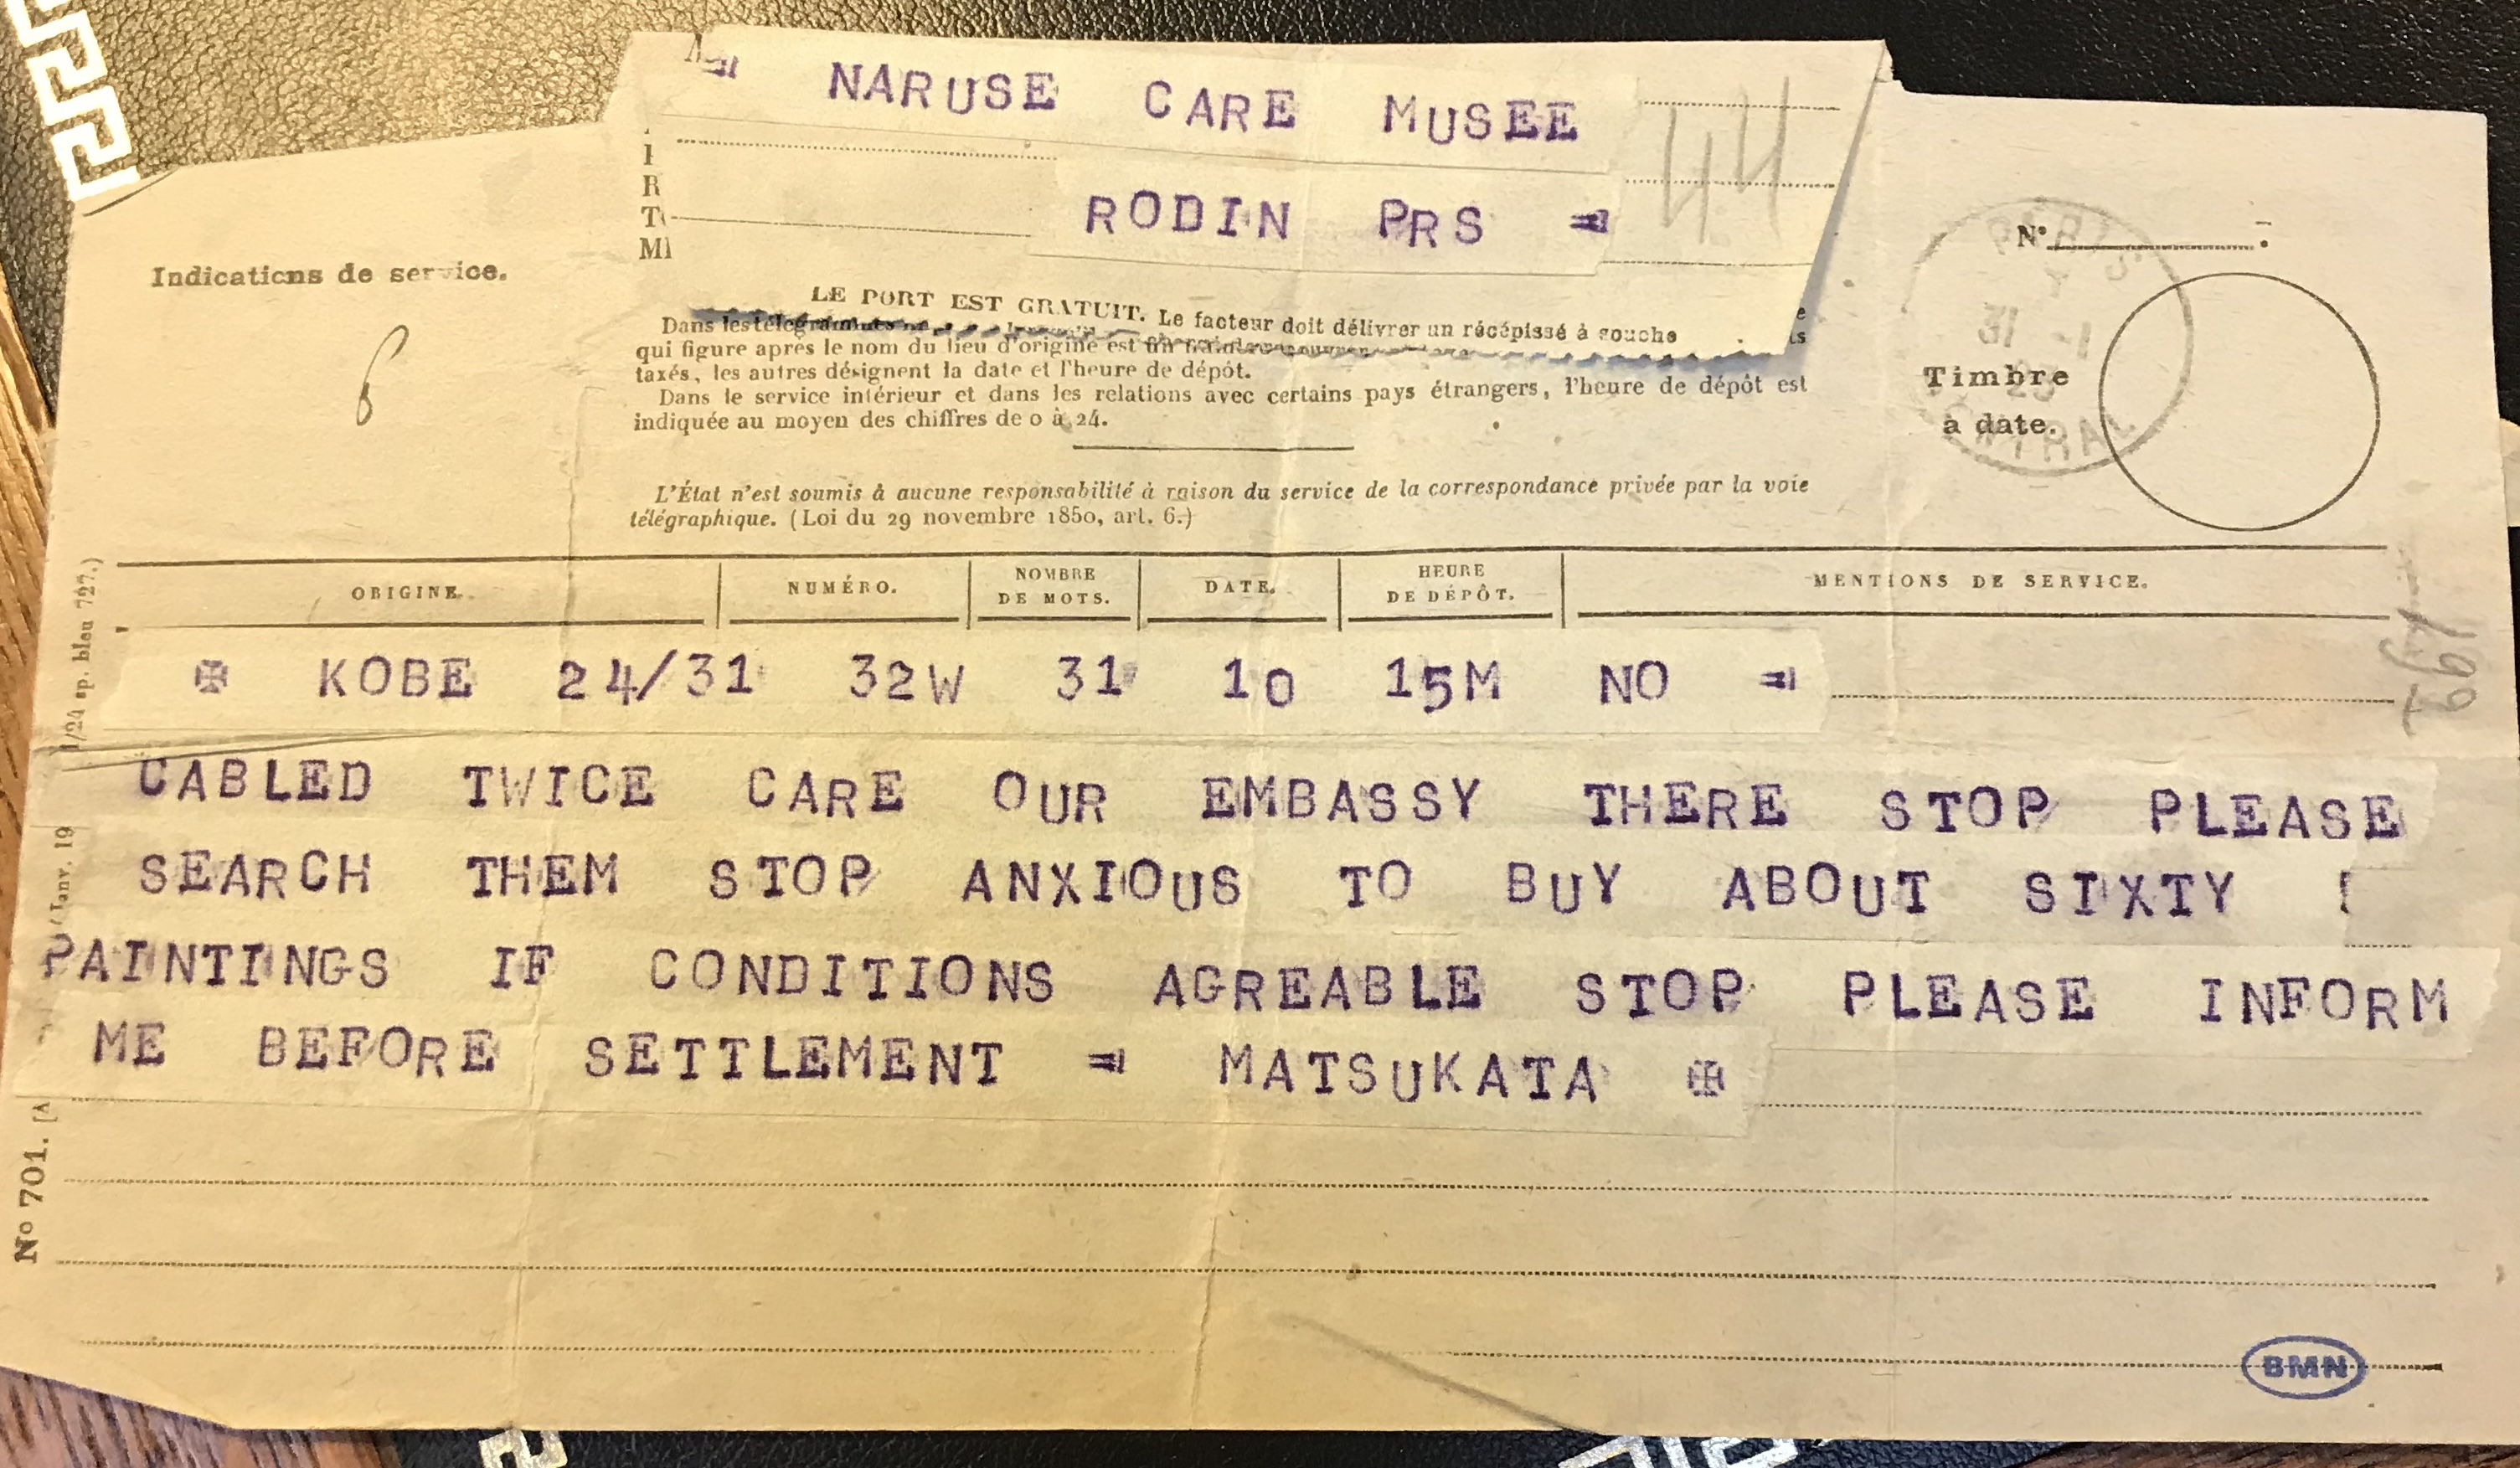 = NARUSE CARE MUSEE
RODIN PRS =
44
R
LE PORT EST GRATUIT. Le facteur doit délivrer un récépissé à souche
Indications de service.
6
Dans les télégrammes
qui figure après le nom du lieu d'origine est un
taxés, les autres désignent la date et l'heure de dépôt.
Dans le service intérieur et dans les relations avec certains pays étrangers, l'heure de dépôt est
indiquée au moyen des chiffres de 0 à 24.
L'État n'est soumis à aucune responsabilité à raison du service de la correspondance privée par la voie
télégraphique. (Loi du 29 novembre 1850, art. 6.)
N°
Timbre
à date.
PARIS
31 -1
23
CENTRAL
ORIGINE. NUMÉRO. NOMBRE DE MOTS. DATE. HEURE DE DÉPÔT. MENTIONS DE SERVICE.
KOBE 24/31 32W 31 10 15M NO =
CABLED TWICE CARE OUR EMBASSY THERE STOP PLEASE
SEARCH THEM STOP ANXIOUS TO BUY ABOUT SIXTY
PAINTINGS IF CONDITIONS AGREABLE STOP PLEASE INFORM
ME BEFORE SETTLEMENT = MATSUKATA
N° 701.
Janv. 19
1/24 sp. bleu 727.)
BMN